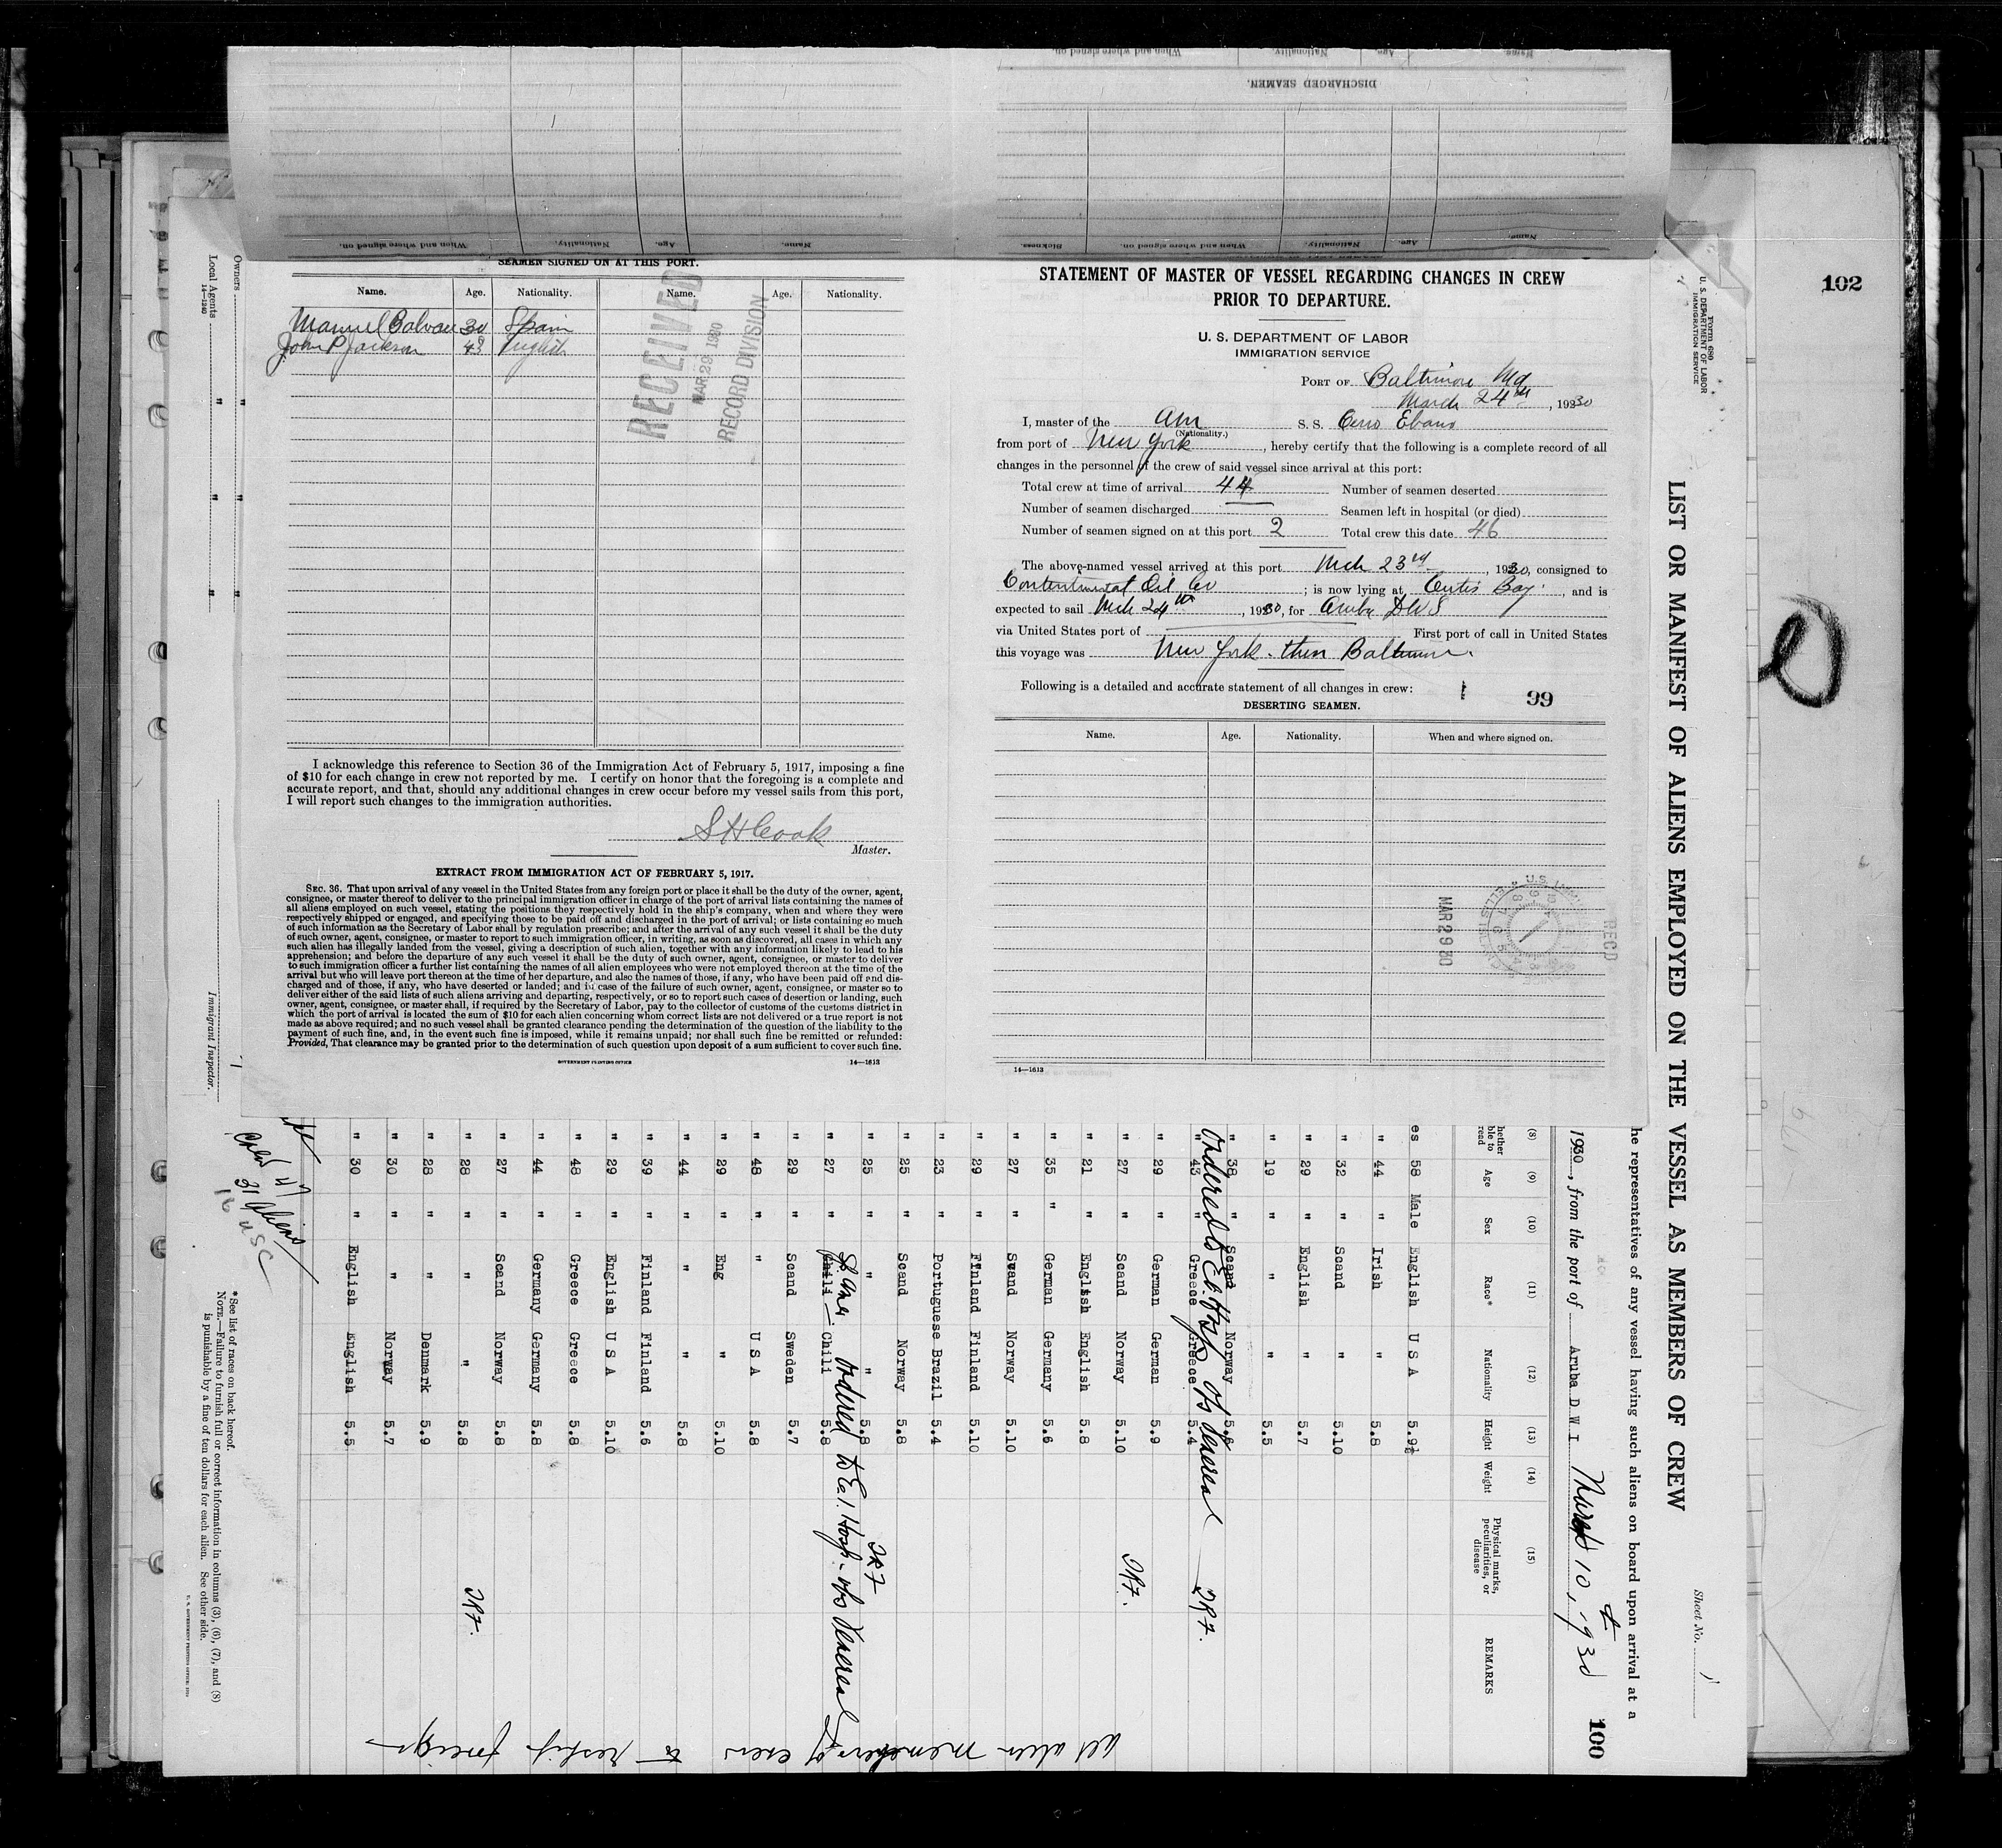 Name. Age. Nationality. When and where signed on.
DISCHARGED SEAMEN.
Name. Age. Nationality. When and where signed on.
Name. Age. Nationality. When and where signed on. Sickness.
SEAMEN SIGNED ON AT THIS PORT.
Name. Age. Nationality. Name. Age. Nationality.
Manuel Galvan 30 Spain
John P Jackson 43 English
RECEIVED
MAR 29 1930
RECORD DIVISION
I acknowledge this reference to Section 36 of the Immigration Act of February 5, 1917, imposing a fine
of $10 for each change in crew not reported by me. I certify on honor that the foregoing is a complete and
accurate report, and that, should any additional changes in crew occur before my vessel sails from this port,
I will report such changes to the immigration authorities.
S H Cook
Master.
EXTRACT FROM IMMIGRATION ACT OF FEBRUARY 5, 1917.
SEC. 36. That upon arrival of any vessel in the United States from any foreign port or place it shall be the duty of the owner, agent,
consignee, or master thereof to deliver to the principal immigration officer in charge of the port of arrival lists containing the names of
all aliens employed on such vessel, stating the positions they respectively hold in the ship's company, when and where they were
respectively shipped or engaged, and specifying those to be paid off and discharged in the port of arrival; or lists containing so much
of such information as the Secretary of Labor shall by regulation prescribe; and after the arrival of any such vessel it shall be the duty
of such owner, agent, consignee, or master to report to such immigration officer, in writing, as soon as discovered, all cases in which any
such alien has illegally landed from the vessel, giving a description of such alien, together with any information likely to lead to his
apprehension; and before the departure of any such vessel it shall be the duty of such owner, agent, consignee, or master to deliver
to such immigration officer a further list containing the names of all alien employees who were not employed thereon at the time of the
arrival but who will leave port thereon at the time of her departure, and also the names of those, if any, who have been paid off and dis-
charged and of those, if any, who have deserted or landed; and in case of the failure of such owner, agent, consignee, or master so to
deliver either of the said lists of such aliens arriving and departing, respectively, or so to report such cases of desertion or landing, such
owner, agent, consignee, or master shall, if required by the Secretary of Labor, pay to the collector of customs of the customs district in
which the port of arrival is located the sum of $10 for each alien concerning whom correct lists are not delivered or a true report is not
made as above required; and no such vessel shall be granted clearance pending the determination of the question of the liability to the
payment of such fine, and, in the event such fine is imposed, while it remains unpaid; nor shall such fine be remitted or refunded:
Provided, That clearance may be granted prior to the determination of such question upon deposit of a sum sufficient to cover such fine.
GOVERNMENT PRINTING OFFICE 14—1613
STATEMENT OF MASTER OF VESSEL REGARDING CHANGES IN CREW
PRIOR TO DEPARTURE.
U. S. DEPARTMENT OF LABOR
IMMIGRATION SERVICE
PORT OF Baltimore Md
March 24th, 1930
I, master of the Am S. S. Cerro Ebano
(Nationality.)
from port of New York, hereby certify that the following is a complete record of all
changes in the personnel of the crew of said vessel since arrival at this port:
Total crew at time of arrival 44 Number of seamen deserted
Number of seamen discharged Seamen left in hospital (or died)
Number of seamen signed on at this port 2 Total crew this date 46
The above-named vessel arrived at this port Mch 23rd, 1930, consigned to
Continental Oil Co; is now lying at Curtis Bay, and is
expected to sail Mch 24th, 1930, for Aruba DWI
via United States port of First port of call in United States
this voyage was New York - then Baltimore.
Following is a detailed and accurate statement of all changes in crew:
99
DESERTING SEAMEN.
Name. Age. Nationality. When and where signed on.
MAR 29 30
REC'D
14—1613
102
Form 680
U. S. DEPARTMENT OF LABOR
IMMIGRATION SERVICE
LIST OR MANIFEST OF ALIENS EMPLOYED ON THE VESSEL AS MEMBERS OF CREW
Sheet No. 1
he representatives of any vessel having such aliens on board upon arrival at a
1930, from the port of Aruba D W I March 10, 1930
100
(8) (9) (10) (11) (12) (13) (14) (15)
Age Sex Race* Nationality Height Weight Physical marks, peculiarities, or disease REMARKS
es 58 Male English U S A 5.9½
" 44 " Irish " 5.8
" 32 " Scand " 5.10
" 29 " English " 5.7
" 19 " " " 5.5
" 38 " Scand Norway 5.6
" 43 " Greece Greece 5.4 2R7.
Ordered to E.I. Hosp ofs venereal
" 29 " German German 5.9
" 27 " Scand Norway 5.10 2R7.
" 21 " English English 5.8
" 35 " German Germany 5.6
" 27 " Scand Norway 5.10
" 29 " Finland Finland 5.10
" 23 " Portuguese Brazil 5.4
" 25 " Scand Norway 5.8
" 25 " " " 5.8 2R7
" 27 " Chili Chili 5.8
ordered to E.I. Hosp - ofs venereal
" 29 " Scand Sweden 5.7
" 48 " " U S A 5.8
" 29 " Eng " 5.10
" 44 " " " 5.8
" 39 " Finland Finland 5.6
" 29 " English U S A 5.10
" 48 " Greece Greece 5.8
" 44 " Germany Germany 5.8
" 27 " Scand Norway 5.8
" 28 " " " 5.8 2R7.
" 28 " " Denmark 5.9
" 30 " " Norway 5.7
" 30 " English English 5.5
all alien members of crew to reship foreign
Crew 47
31 Aliens
16 USC
* See list of races on back hereof.
NOTE.—Failure to furnish full or correct information in columns (3), (6), (7), and (8)
is punishable by a fine of ten dollars for each alien. See other side.
Owners
Local Agents
14—1240
Immigrant Inspector.